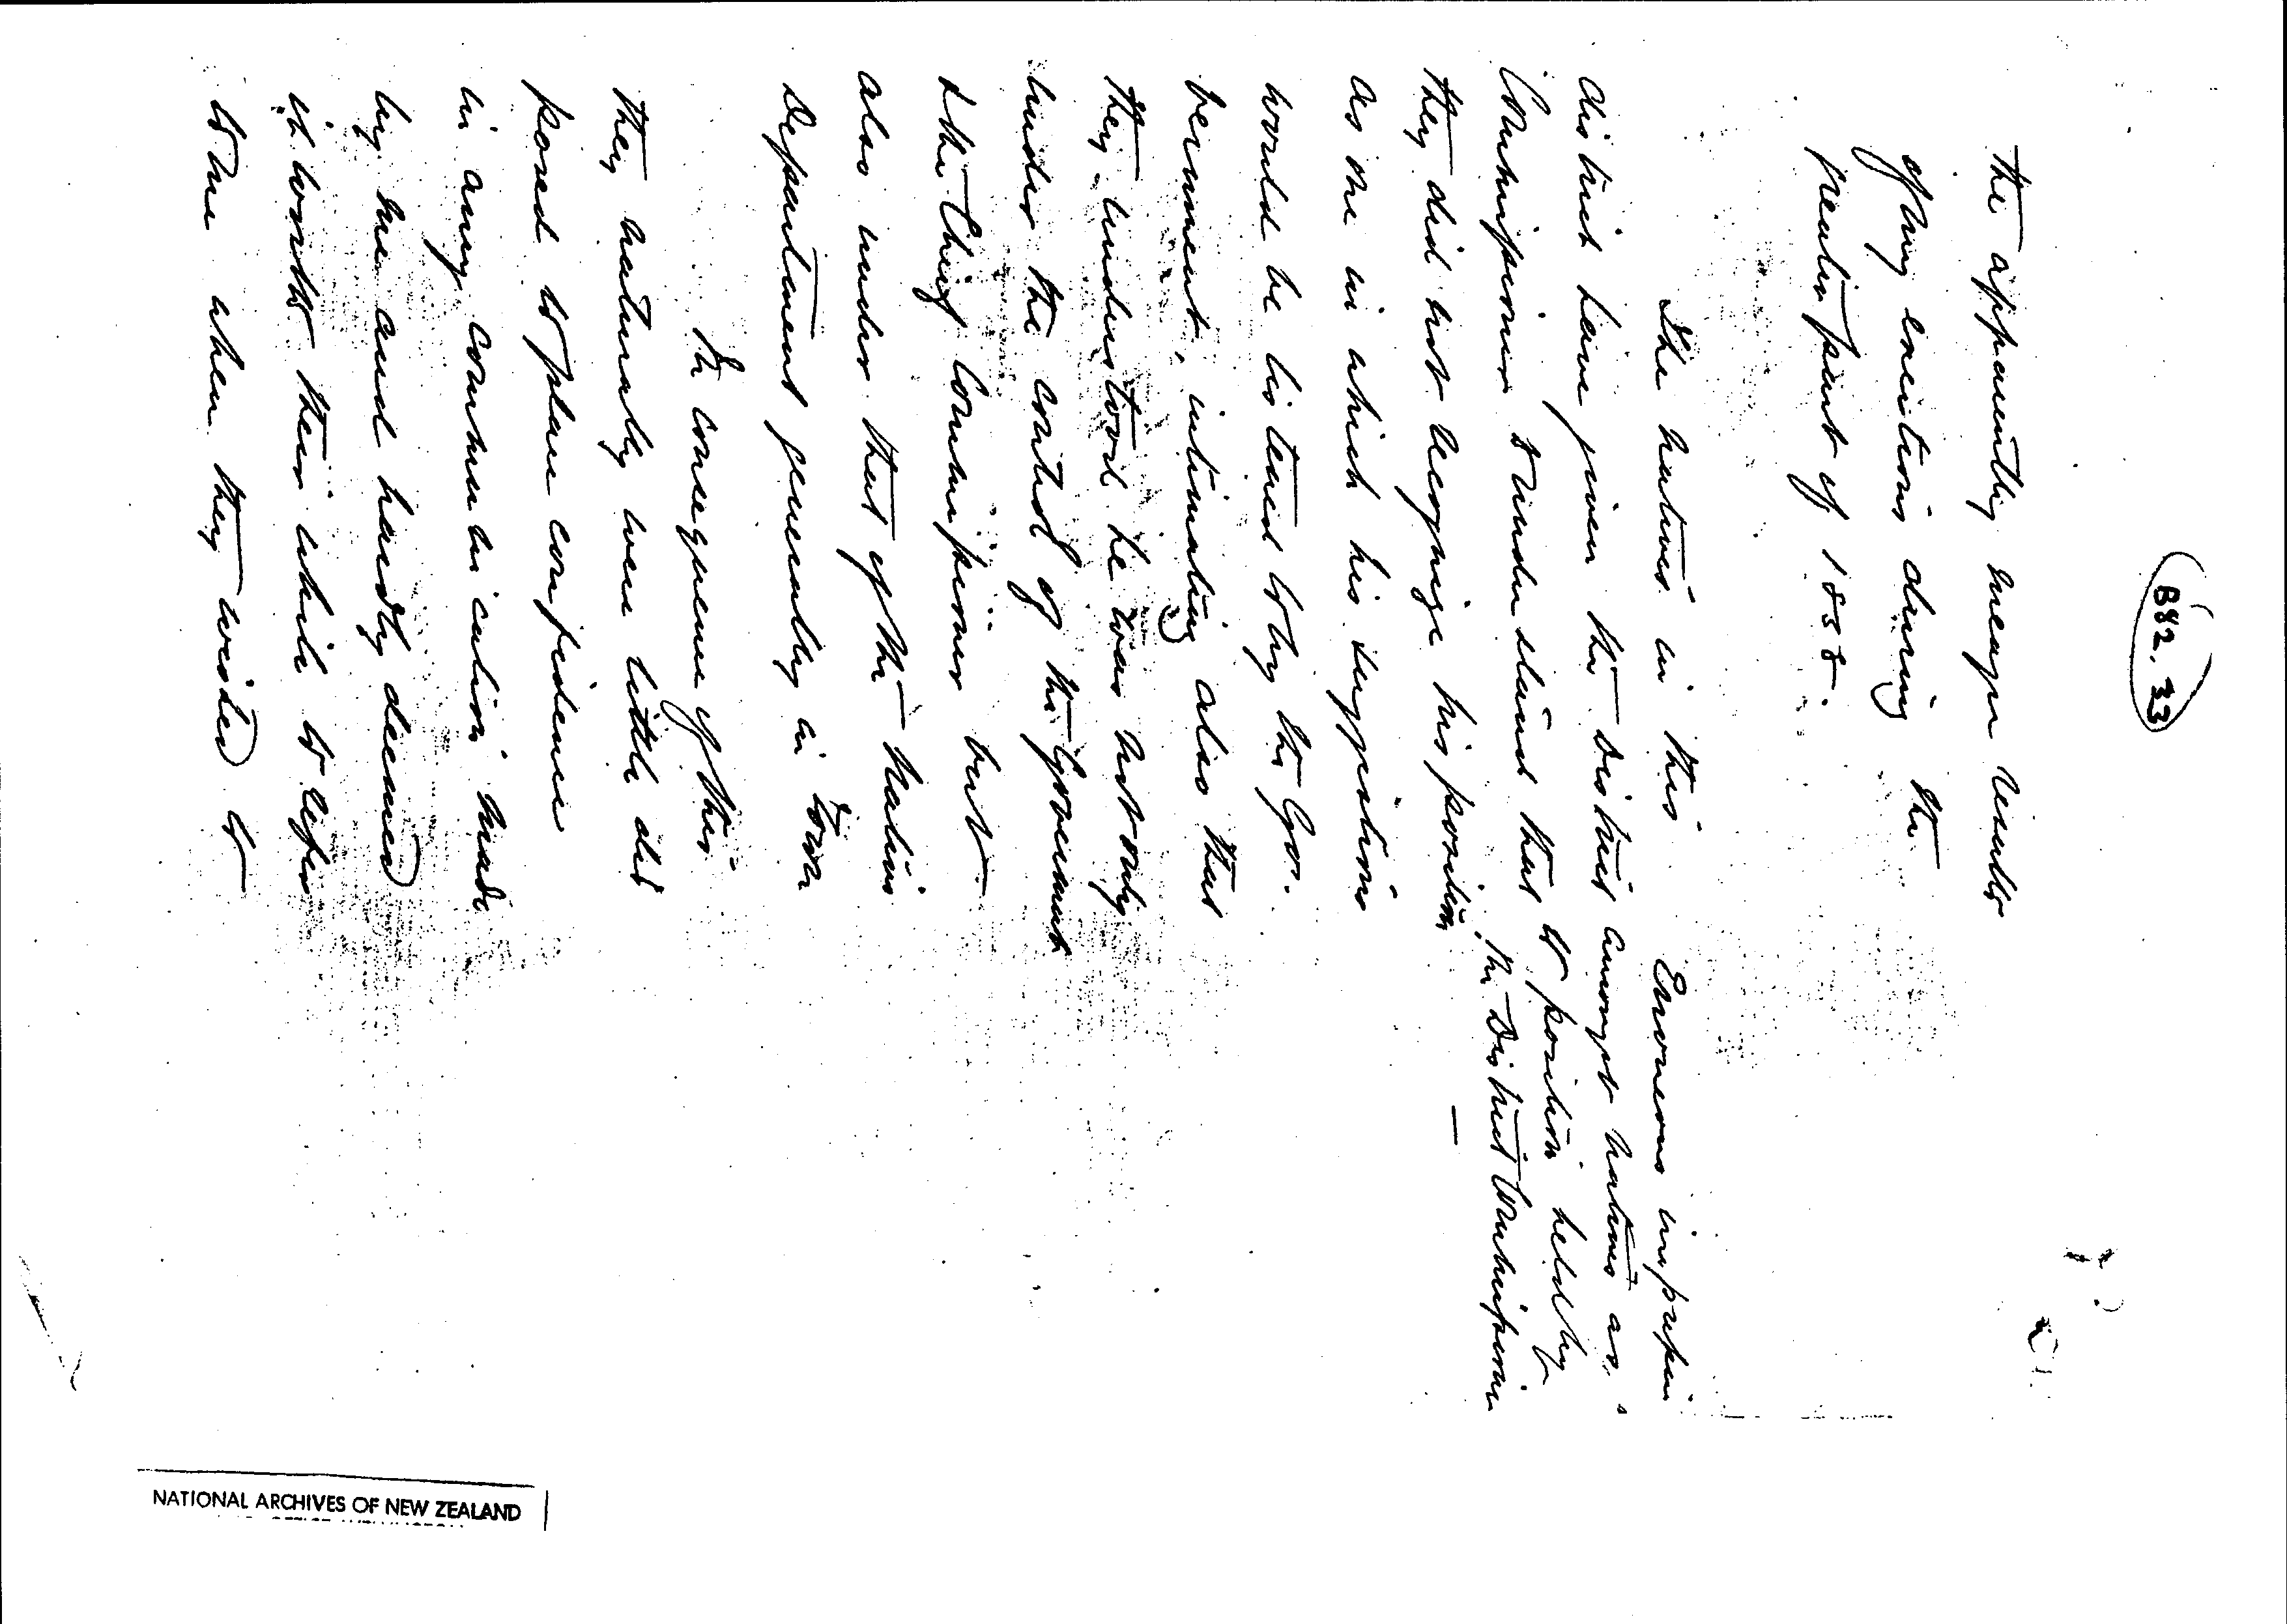 B82.33
the apparently meagre results
of my exertions during the
greater part of 1858.
The natives in this
district have given the District
Commissioner to understand that
they did not recognize his position
as one in which his suggestions
would be listened to by the Go-
vernment, intimating also that
they understood he was not only
under the control of the Government
& the Chief Commissioner but
also under that of the Native
Department generally in Town
In consequence of this
they naturally were little dis
posed to place confidence
in any communication made
by me and hardly deemed
it worth their while to refer
to me when they wished to
Erroneous impression
amongst natives as
to position held by
the District Commissioner
NATIONAL ARCHIVES OF NEW ZEALAND